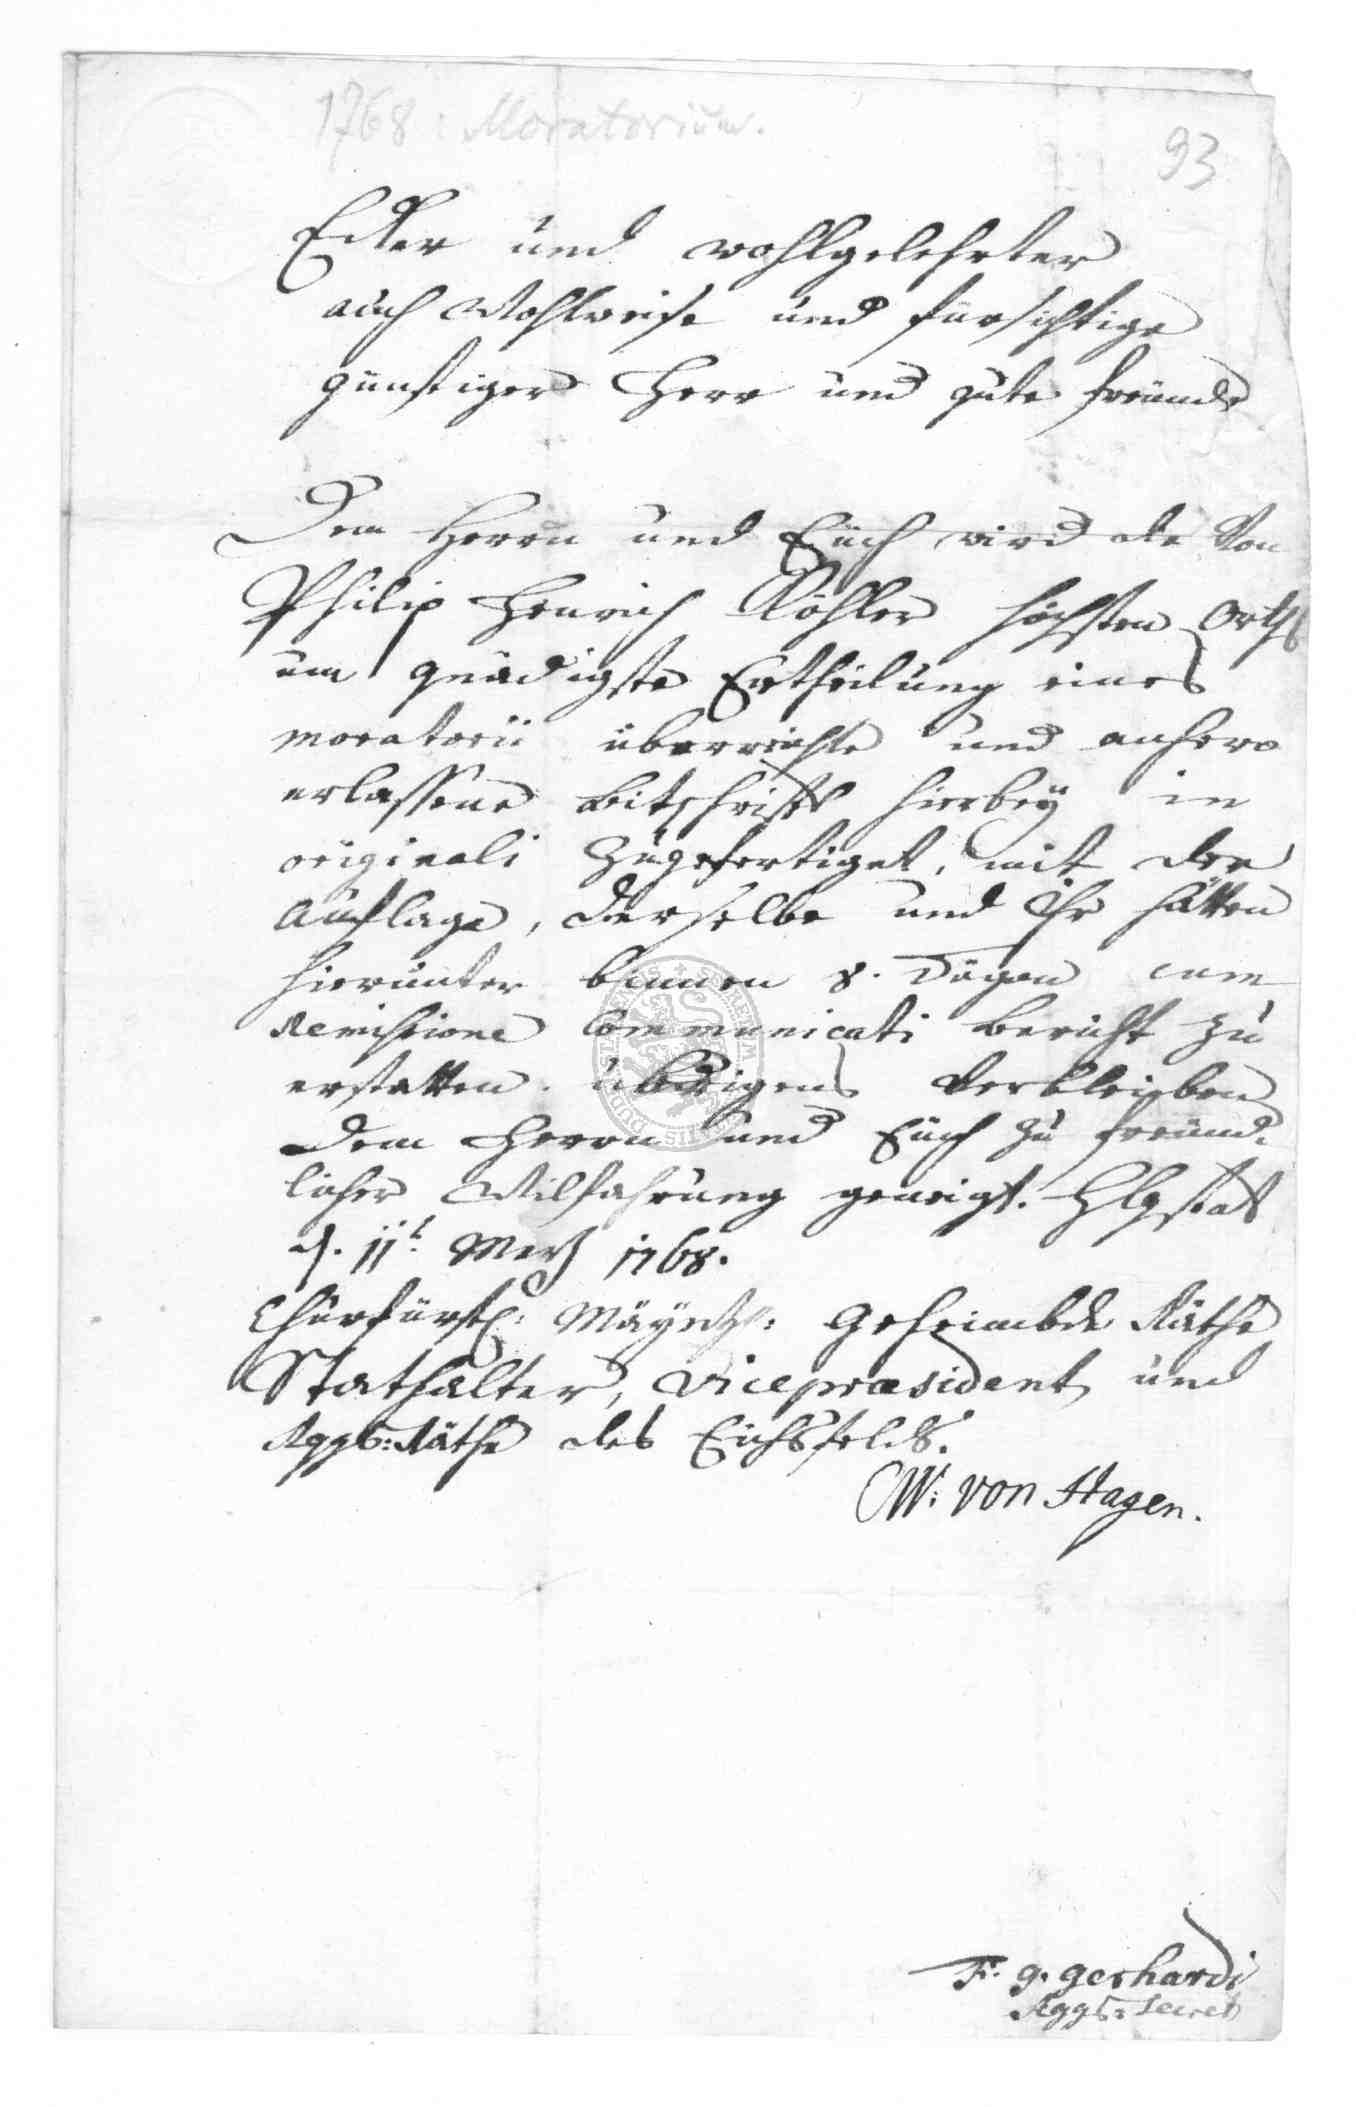 1768: Moratorium.
93
Edler und wohlgelehrter
auch Wohlweise und fürsichtige
günstiger Herr und gute freunde
Dem Herrn und Euch wird die Von
Philip Henrich Köhler höchsten Orths
um gnädigste Ertheilung eines
moratorii überreichte und anhero
erlassene bitschrifft hierbey in
originali Zugefertiget, mit der
Auflage, derselbe und Ihr hätten
hierunter binnen 8. Tagen cum
Remissione Communicati bericht zu
erstatten. übrigens verbleiben
dem Herrn und Euch zu freund-
licher Wilfahrung geneigt. Hlgstat
d. 11t. Mertz 1768.
Churfürstl: Mäyntz: Geheimbde Räthe
Stathalter, Vicepræsident und
Rggs: Räthe des Eichsfelds.
W: von Hagen.
F. G. Gerhardi
Rggs: Secret